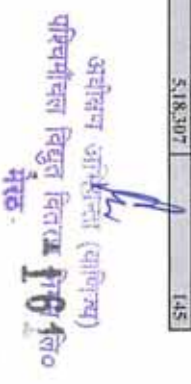 5,18,307 145
अधीक्षण अभियन्ता (वाणिज्य)
पश्चिमांचल विद्युत वितरण लि०
161
मेरठ